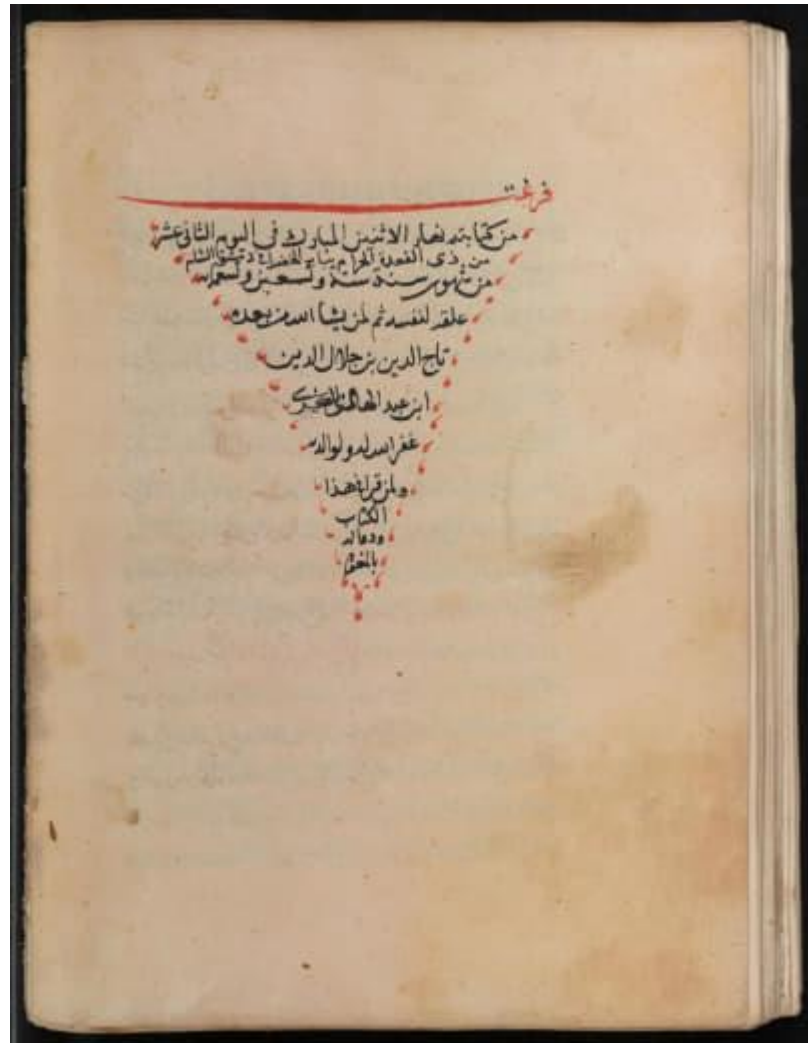 فرغت
من كتابته نهار الاثنين المبارك في اليوم الثاني عشر
من ذي القعدة الحرام دمشق الشام
من شهور سنة ستة وتسعين وتسعمائة
علقه لنفسه ثم لمن يشأ الله من بعده
تاج الدين بن جلال الدين
ابن عبد
غفر الله له ولوالديه
ولمن قرأ في هذا
الكتاب
ودعا له
بالمغفرة